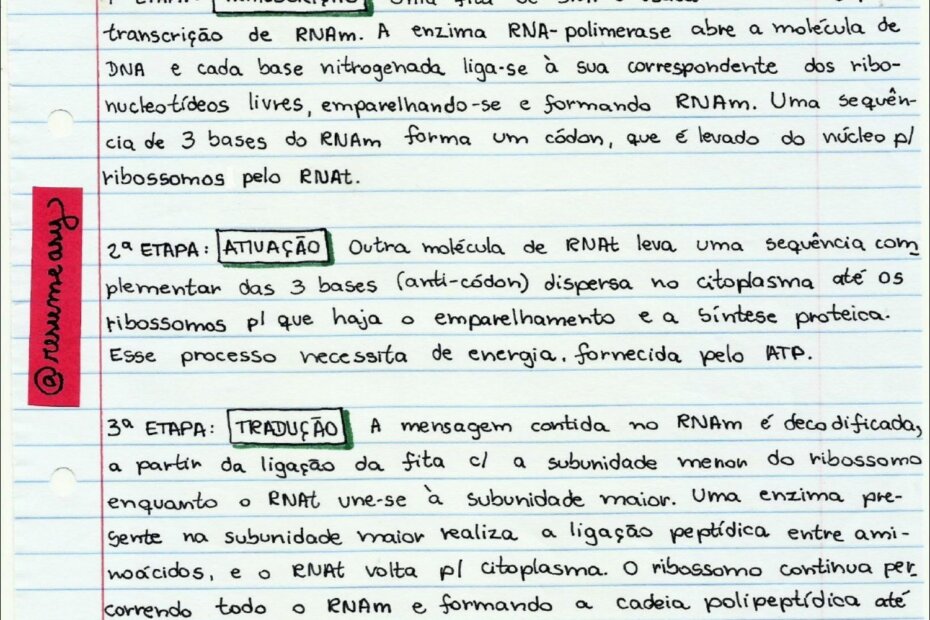 transcrição de RNAm. A enzima RNA-polimerase abre a molécula de
DNA e cada base nitrogenada liga-se à sua correspondente dos ribo-
nucleotídeos livres, emparelhando-se e formando RNAm. Uma sequên-
cia de 3 bases do RNAm forma um códon, que é levado do núcleo p/
ribossomos pelo RNAt.
@resumeasy
2ª ETAPA: ATIVAÇÃO Outra molécula de RNAt leva uma sequência com
plementar das 3 bases (anti-códon) dispersa no citoplasma até os
ribossomos p/ que haja o emparelhamento e a síntese proteica.
Esse processo necessita de energia, fornecida pelo ATP.
3ª ETAPA: TRADUÇÃO A mensagem contida no RNAm é decodificada,
a partir da ligação da fita c/ a subunidade menor do ribossomo
enquanto o RNAt une-se à subunidade maior. Uma enzima pre-
sente na subunidade maior realiza a ligação peptídica entre ami-
noácidos, e o RNAt volta p/ citoplasma. O ribossomo continua per
correndo todo o RNAm e formando a cadeia polipeptídica até